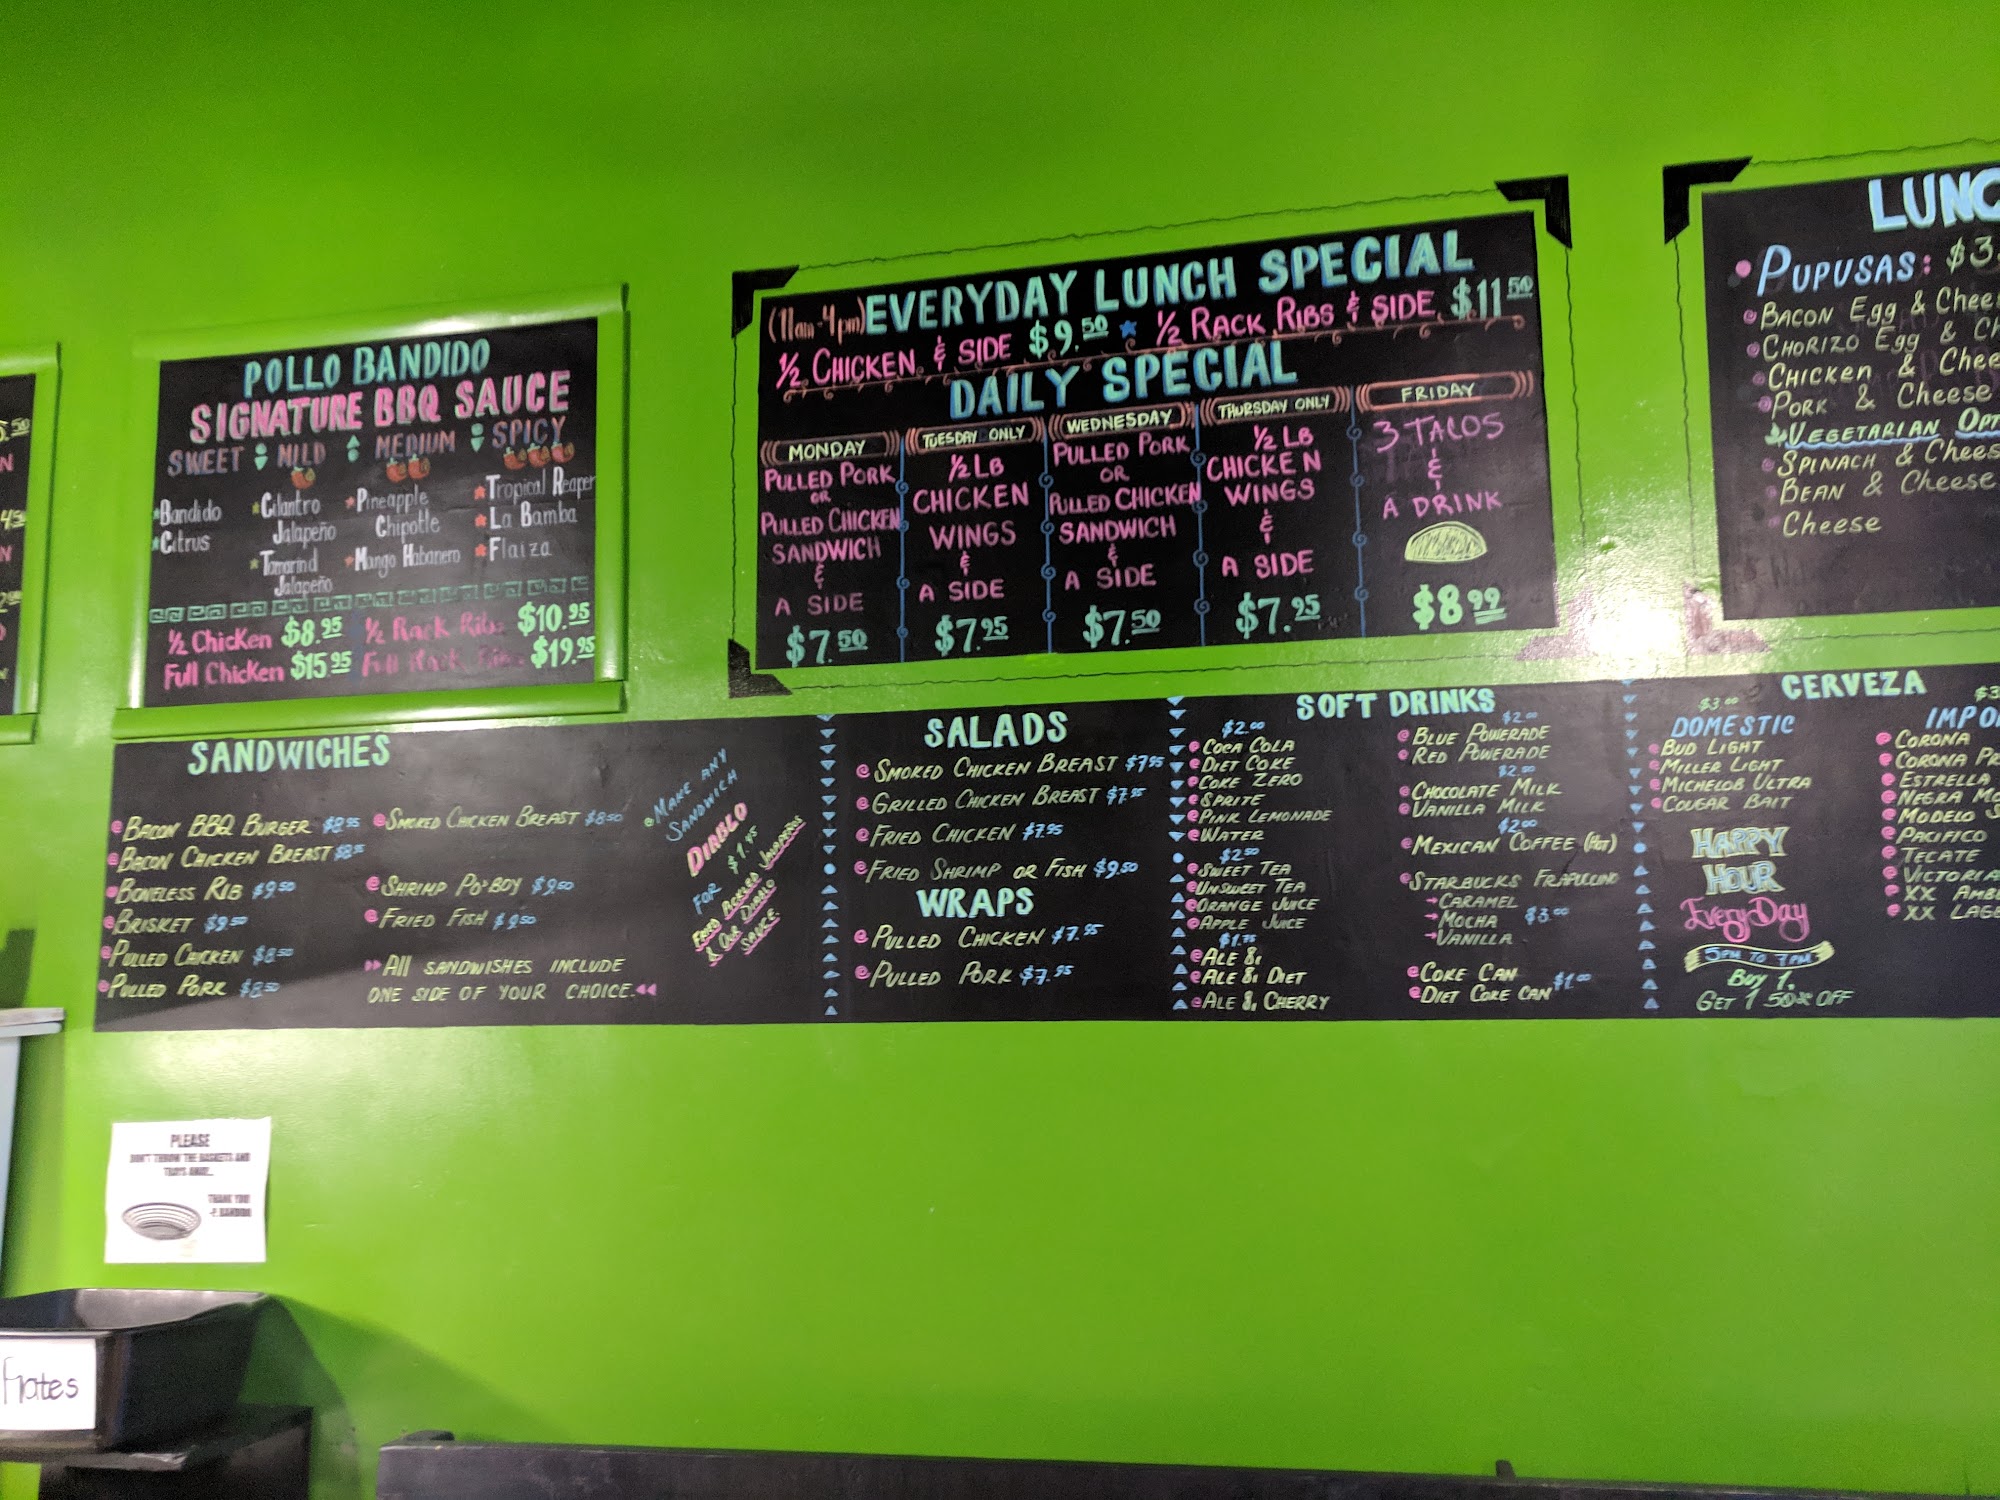 POLLO BANDIDO
SIGNATURE BBQ SAUCE
SWEET MILD MEDIUM SPICY
Bandido
Citrus
Cilantro
Jalapeño
Tamarind
Jalapeño
Pineapple
Chipotle
Mango Habanero
Tropical Reaper
La Bamba
Flaiza
1/2 Chicken $8.95 1/2 Rack Ribs $10.95
Full Chicken $15.95 Full Rack Ribs $19.95
(11am-4pm) EVERYDAY LUNCH SPECIAL
1/2 CHICKEN & SIDE $9.50 ★ 1/2 RACK RIBS & SIDE $11.50
DAILY SPECIAL
MONDAY
PULLED PORK
OR
PULLED CHICKEN
SANDWICH
&
A SIDE
$7.50
TUESDAY ONLY
1/2 LB
CHICKEN
WINGS
&
A SIDE
$7.95
WEDNESDAY
PULLED PORK
OR
PULLED CHICKEN
SANDWICH
&
A SIDE
$7.50
THURSDAY ONLY
1/2 LB
CHICKEN
WINGS
&
A SIDE
$7.95
FRIDAY
3 TACOS
&
A DRINK
$8.99
LUNC
PUPUSAS: $3.
BACON Egg & Chee
CHORIZO Egg & Ch
CHICKEN & Chee
PORK & Cheese
VEGETARIAN OPT
SPINACH & Chees
BEAN & Cheese
Cheese
SANDWICHES
BACON BBQ BURGER $8.95
BACON CHICKEN BREAST $8.95
BONELESS RIB $9.50
BRISKET $9.50
PULLED CHICKEN $8.50
PULLED PORK $8.50
SMOKED CHICKEN BREAST $8.50
SHRIMP PO'BOY $9.50
FRIED FISH $9.50
All SANDWISHES INCLUDE
ONE SIDE OF YOUR CHOICE.
MAKE ANY
SANDWICH
DIABLO
FOR $1.45
FRIED PICKLED JALAPEÑOS
& OUR DIABLO
SAUCE.
SALADS
SMOKED CHICKEN BREAST $7.95
GRILLED CHICKEN BREAST $7.95
FRIED CHICKEN $7.95
FRIED SHRIMP OR FISH $9.50
WRAPS
PULLED CHICKEN $7.95
PULLED PORK $7.95
SOFT DRINKS
$2.00
COCA COLA
DIET COKE
COKE ZERO
SPRITE
PINK LEMONADE
WATER
$2.50
SWEET TEA
UNSWEET TEA
ORANGE JUICE
APPLE JUICE
$1.75
ALE 81
ALE 81 DIET
ALE 81 CHERRY
$2.00
BLUE POWERADE
RED POWERADE
$2.50
CHOCOLATE MILK
VANILLA MILK
$2.00
MEXICAN COFFEE (HOT)
STARBUCKS FRAPULLINO
CARAMEL
MOCHA $3.00
VANILLA
COKE CAN
DIET COKE CAN $1.00
CERVEZA
$3.00
DOMESTIC
BUD LIGHT
MILLER LIGHT
MICHELOB ULTRA
COUGAR BAIT
HAPPY
HOUR
EveryDay
5PM TO 7PM
BUY 1,
GET 1 50% OFF
$3
IMPO
CORONA
CORONA PR
ESTRELLA
NEGRA MO
MODELO S
PACIFICO
TECATE
VICTORIA
XX AMB
XX LAGE
PLEASE
DON'T THROW THE BASKETS AND
TRAYS AWAY...
THANK YOU